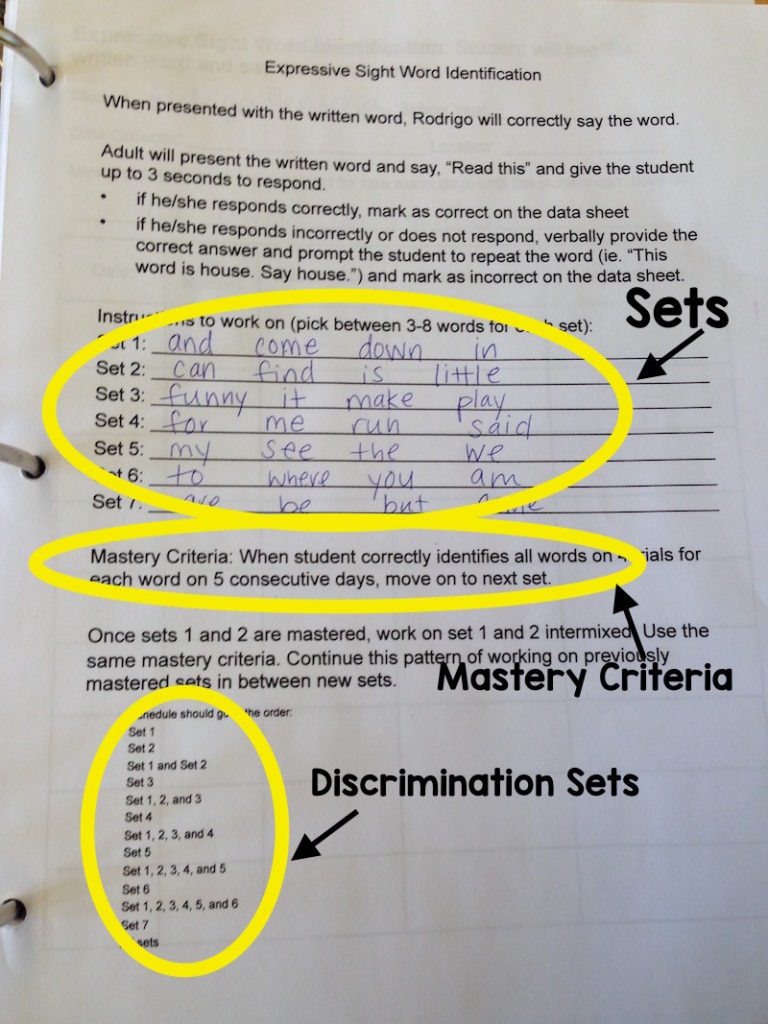 Expressive Sight Word Identification
When presented with the written word, Rodrigo will correctly say the word.
Adult will present the written word and say, “Read this” and give the student
up to 3 seconds to respond.
• if he/she responds correctly, mark as correct on the data sheet
• if he/she responds incorrectly or does not respond, verbally provide the
correct answer and prompt the student to repeat the word (ie. “This
word is house. Say house.”) and mark as incorrect on the data sheet.
Sets
to work on (pick between 3-8 words for set):
1: and come down in
Set 2: can find is little
Set 3: funny it make play
Set 4: for me run said
Set 5: my see the we
6: to where you am
Set 7: are be but
Mastery Criteria: When student correctly identifies all words on for
each word on 5 consecutive days, move on to next set.
Once sets 1 and 2 are mastered, work on set 1 and 2 intermixed. Use the
same mastery criteria. Continue this pattern of working on previously
mastered sets in between new sets.
Mastery Criteria
should the order:
Set 1
Set 2
Set 1 and Set 2
Set 3
Set 1, 2, and 3
Set 4
Set 1, 2, 3, and 4
Set 5
Set 1, 2, 3, 4, and 5
Set 6
Set 1, 2, 3, 4, 5, and 6
Set 7
sets
Discrimination Sets